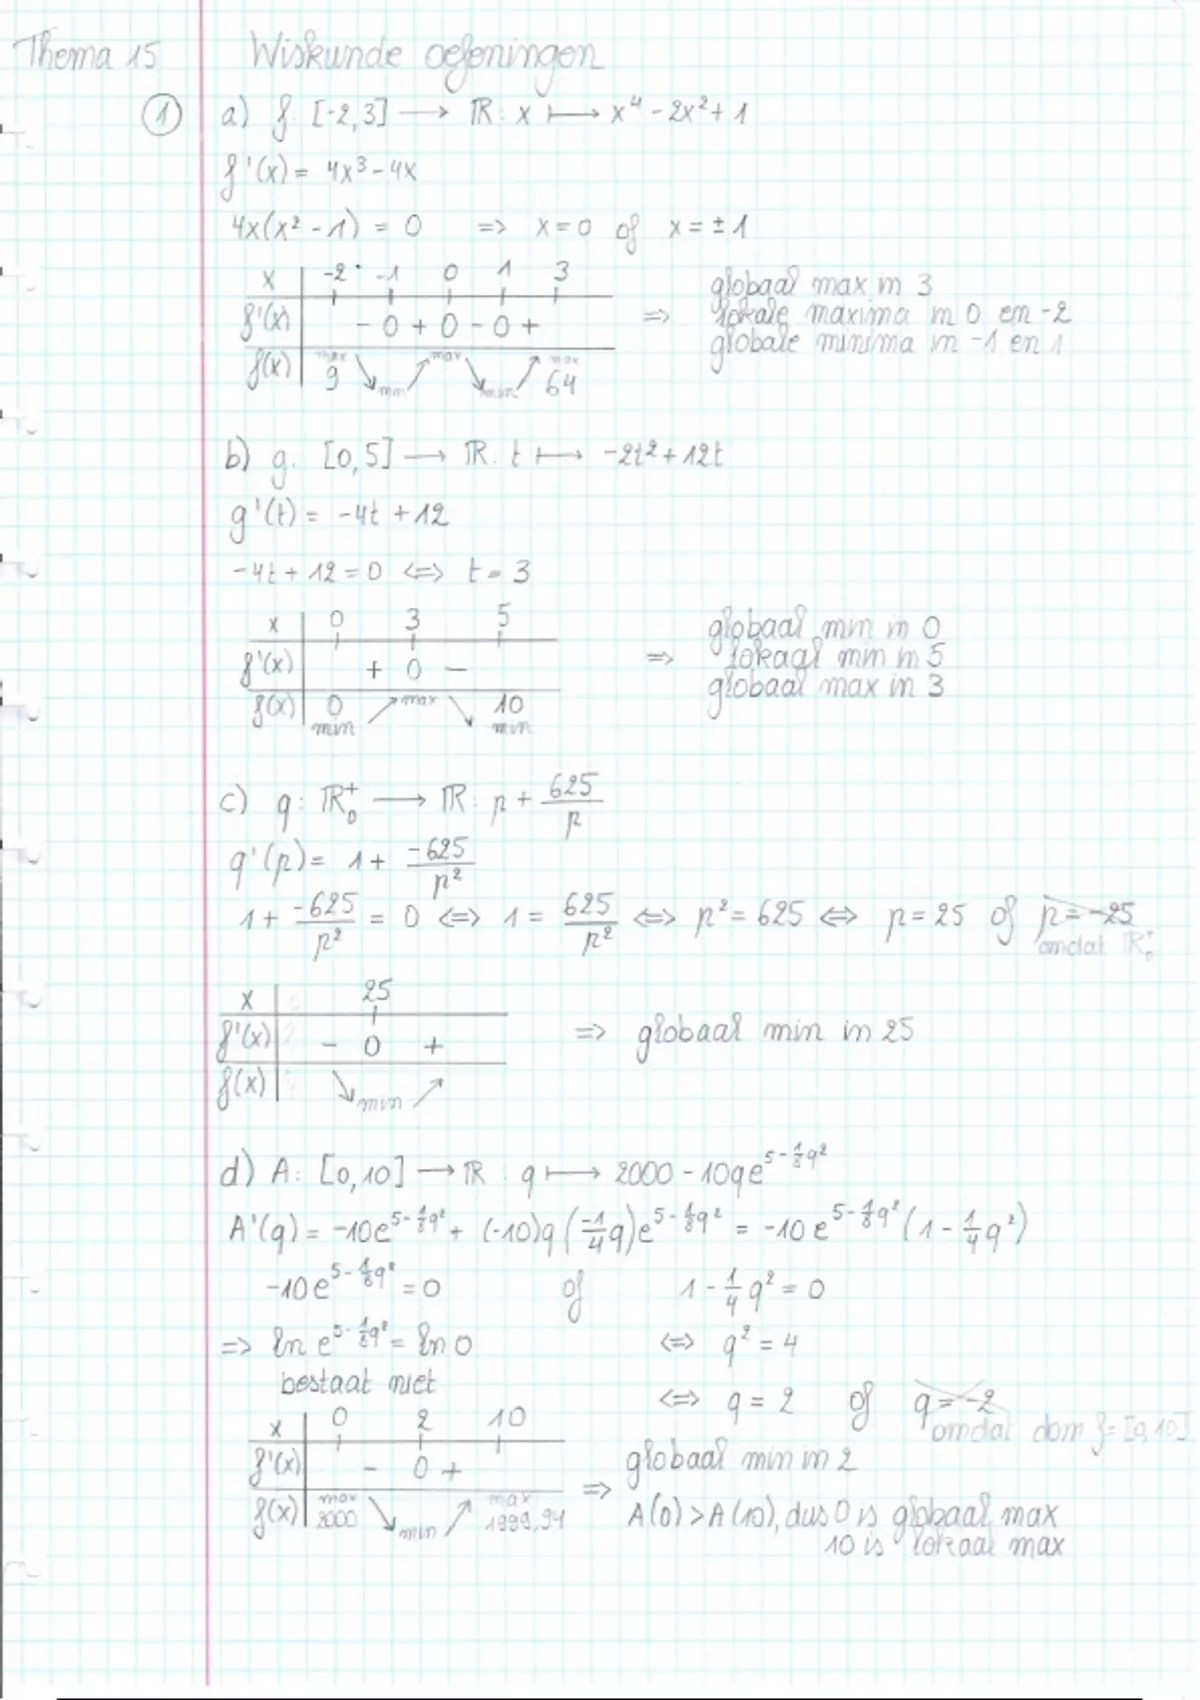 Thema 15 Wiskunde oefeningen
① a) f: [-2,3] ⟶ ℝ: x ⟼ x⁴ - 2x² + 1
f'(x) = 4x³ - 4x
4x(x² - 1) = 0 => x = 0 of x = ± 1
x | -2 -1 0 1 3
f'(x) | - 0 + 0 - 0 +
f(x) | max 9 ↘ min ↗ max ↘ min ↗ max 64
=> globaal max in 3
lokale maxima in 0 en -2
globale minima in -1 en 1
b) g: [0,5] ⟶ ℝ: t ⟼ -2t² + 12t
g'(t) = -4t + 12
-4t + 12 = 0 <=> t = 3
x | 0 3 5
f'(x) | + 0 -
f(x) | 0 min ↗ max ↘ 10 min
=> globaal min in 0
lokaal min in 5
globaal max in 3
c) q: ℝ₀⁺ ⟶ ℝ: p + 625/p
q'(p) = 1 + -625/p²
1 + -625/p² = 0 <=> 1 = 625/p² <=> p² = 625 <=> p = 25 of p = -25
omdat ℝ₀⁺
x | 25
f'(x) | - 0 +
f(x) | ↘ min ↗
=> globaal min in 25
d) A: [0,10] ⟶ ℝ: q ⟼ 2000 - 10qe^(5 - 1/8 q²)
A'(q) = -10e^(5 - 1/8 q²) + (-10)q(-1/4 q)e^(5 - 1/8 q²) = -10e^(5 - 1/8 q²)(1 - 1/4 q²)
-10e^(5 - 1/8 q²) = 0 of 1 - 1/4 q² = 0
=> ln e^(5 - 1/8 q²) = ln 0 <=> q² = 4
bestaat niet
<=> q = 2 of q = -2
omdat dom f = [0,10]
x | 0 2 10
f'(x) | - 0 +
f(x) | max 2000 ↘ min ↗ max 1999,94
=> globaal min in 2
A(0) > A(10), dus 0 is globaal max
10 is lokaal max